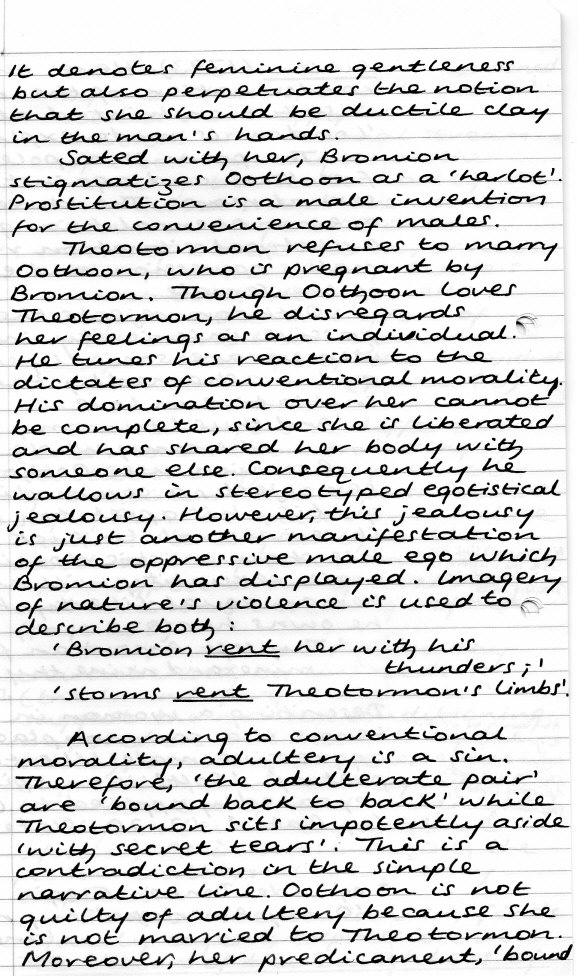 It denotes feminine gentleness
but also perpetuates the notion
that she should be ductile clay
in the man's hands.
Sated with her, Bromion
stigmatizes Oothoon as a 'harlot'.
Prostitution is a male invention
for the convenience of males.
Theotormon refuses to marry
Oothoon, who is pregnant by
Bromion. Though Oothoon loves
Theotormon, he disregards
her feelings as an individual.
He tunes his reaction to the
dictates of conventional morality.
His domination over her cannot
be complete, since she is liberated
and has shared her body with
someone else. Consequently he
wallows in stereotyped egotistical
jealousy. However, this jealousy
is just another manifestation
of the oppressive male ego which
Bromion has displayed. Imagery
of nature's violence is used to
describe both:
'Bromion rent her with his
thunders;'
'storms rent Theotormon's limbs'.
According to conventional
morality, adultery is a sin.
Therefore, 'the adulterate pair'
are 'bound back to back' while
Theotormon sits impotently aside
'with secret tears'. This is a
contradiction in the simple
narrative line. Oothoon is not
guilty of adultery because she
is not married to Theotormon.
Moreover, her predicament, 'bound